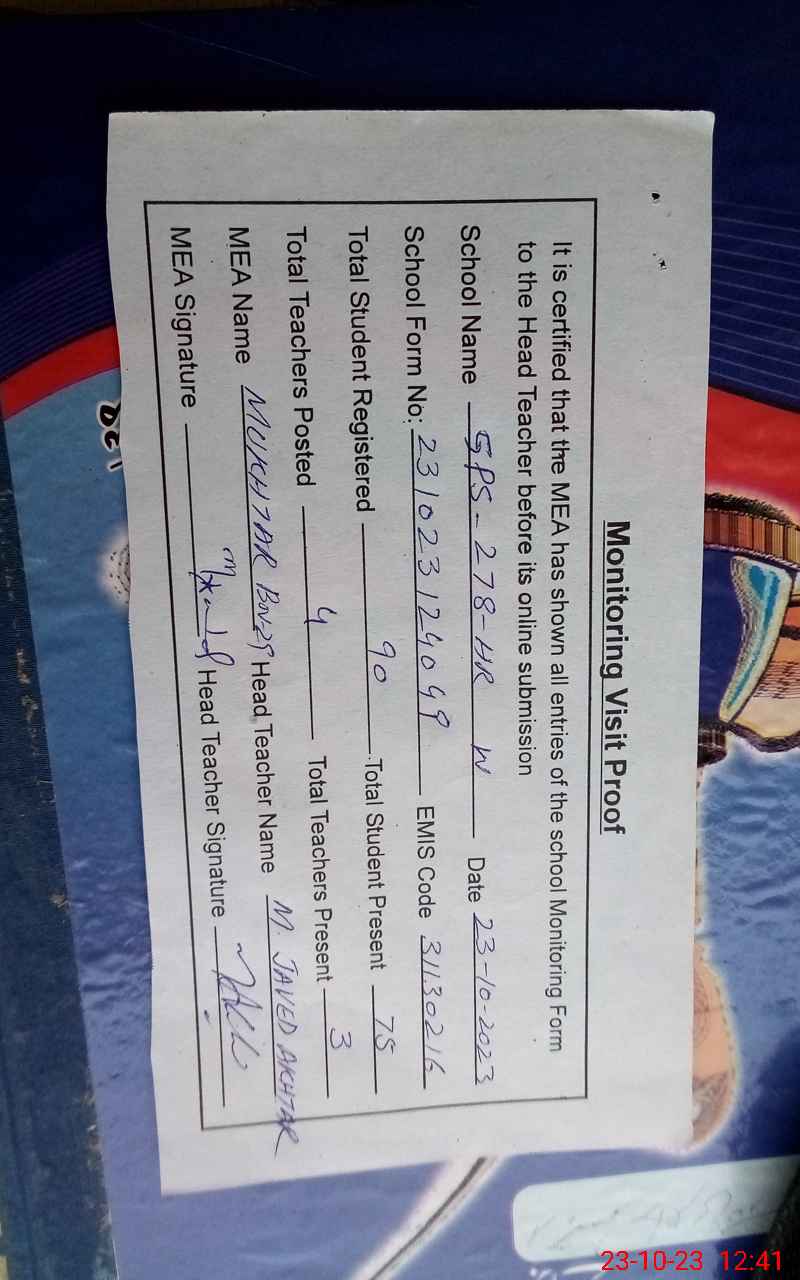 Monitoring Visit Proof
It is certified that the MEA has shown all entries of the school Monitoring Form
to the Head Teacher before its online submission
School Name GPS-278-HR W Date 23-10-2023
School Form No: 231023124049 EMIS Code 31130216
Total Student Registered 90 Total Student Present 75
Total Teachers Posted 4 Total Teachers Present 3
MEA Name MUKHTAR Head Teacher Name M. JAVED AKHTAR
MEA Signature Head Teacher Signature
23-10-23 12:41